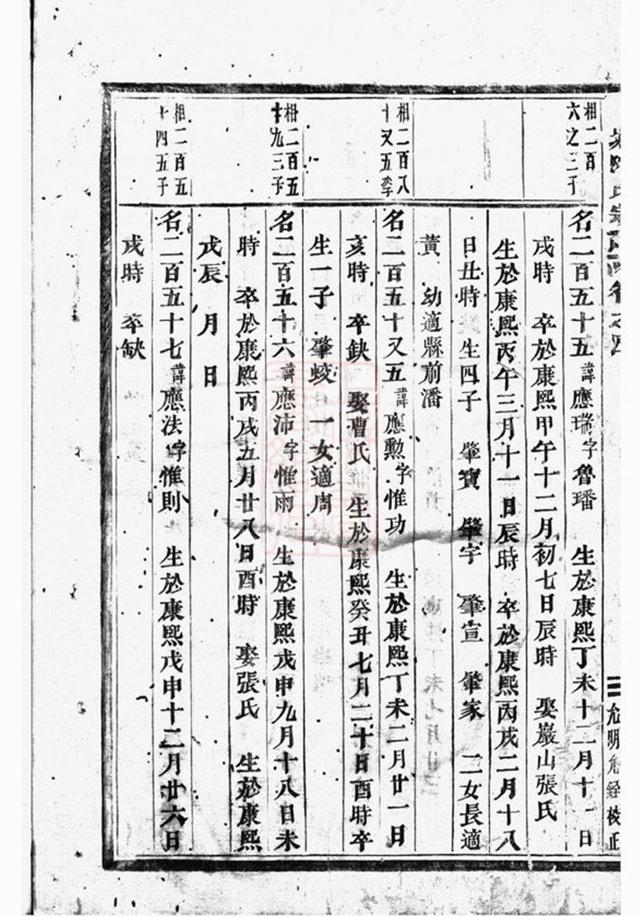 相二百
六之三子
名二百五十五諱應瑞字魯璠 生於康熙丁未十二月十一日
戌時 卒於康熙甲午十二月初七日辰時 娶巖山張氏
生於康熙丙午三月十一日辰時 卒於康熙丙戌二月十八
日丑時 生四子 肇寶 肇字 肇宣 肇家 二女長適
黃 幼適縣前潘
相二百八
十又五季
名二百五十又五諱應勳字惟功 生於康熙丁未二月廿一日
亥時 卒缺 娶曹氏 生於康熙癸丑七月二十日酉時卒
生一子 肇蛟 一女適周
相二百五
十九三子
名二百五十六諱應沛字惟雨 生於康熙戊申九月十八日未
時 卒於康熙丙戌五月廿八日酉時 娶張氏 生於康熙
戊辰 月 日
相二百五
十四五子
名二百五十七諱應法字惟則 生於康熙戊申十二月廿六日
戌時 卒缺